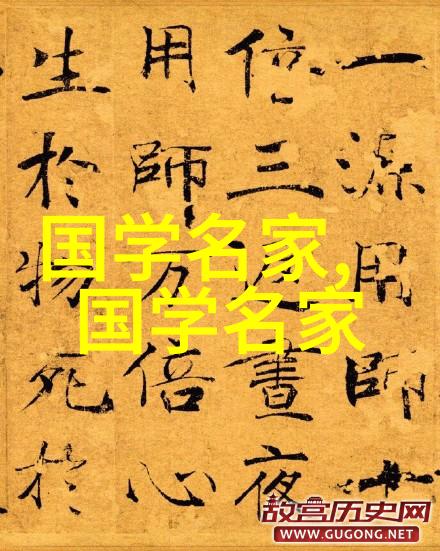 一源用師十
倍三返晝夜
用師万倍心
生於物死於
国学名家,
国学名家
故宫历史网
WWW.GUGONG.NET